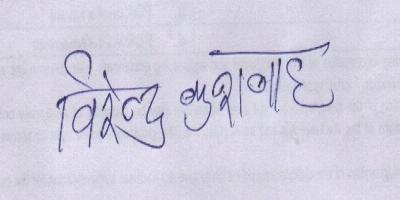 विरेन्द्र कुशवाह